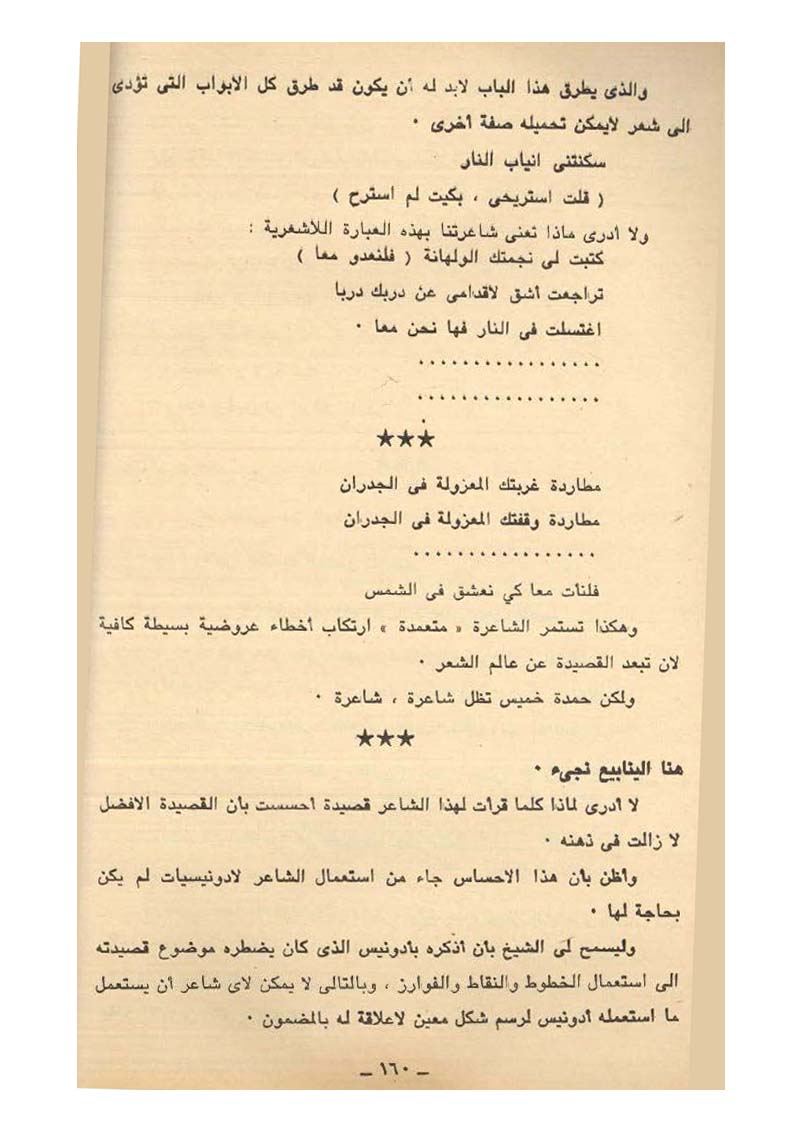 والذى يطرق هذا الباب لابد له أن يكون قد طرق كل الابواب التى تؤدى
الى شعر لايمكن تحميله صفة أخرى ٠
سكنتنى انياب النار
( قلت استريحى ، بكيت لم استرح )
ولا أدرى ماذا تعنى شاعرتنا بهذه العبارة اللاشعرية :
كتبت لى نجمتك الولهانة ( فلنعدو معا )
تراجعت أشق لاقدامى عن دربك دربا
اغتسلت فى النار فها نحن معا ٠
٠٠٠٠٠٠٠٠٠٠٠٠٠٠٠٠٠
٠٠٠٠٠٠٠٠٠٠٠٠٠٠٠٠٠
★★★
مطاردة غربتك المعزولة فى الجدران
مطاردة وقفتك المعزولة فى الجدران
٠٠٠٠٠٠٠٠٠٠٠٠٠٠٠٠٠
فلنأت معا كي نعشق فى الشمس
وهكذا تستمر الشاعرة « متعمدة » ارتكاب أخطاء عروضية بسيطة كافية
لان تبعد القصيدة عن عالم الشعر ٠
ولكن حمدة خميس تظل شاعرة ، شاعرة ٠
★★★
هنا الينابيع نجىء ٠
لا أدرى لماذا كلما قرأت لهذا الشاعر قصيدة أحسست بأن القصيدة الافضل
لا زالت فى ذهنه ٠
وأظن بأن هذا الاحساس جاء من استعمال الشاعر لادونيسيات لم يكن
بحاجة لها ٠
وليسمح لى الشيخ بأن أذكره بأدونيس الذى كان يضطره موضوع قصيدته
الى استعمال الخطوط والنقاط والفوارز ، وبالتالى لا يمكن لاى شاعر أن يستعمل
ما استعمله أدونيس لرسم شكل معين لاعلاقة له بالمضمون ٠
ـ ١٦٠ ـ